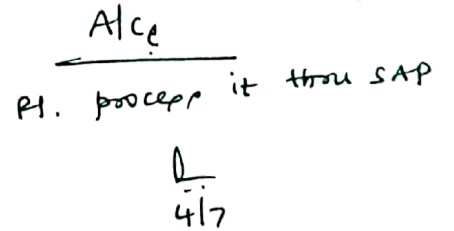 A/cs
Pl. process it throu SAP
4/7